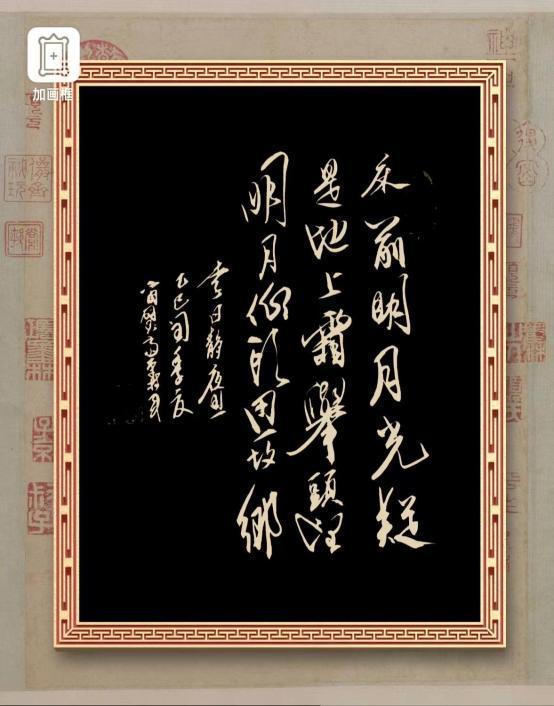 加画框
床前明月光疑
是地上霜舉頭望
明月低頭思故鄉
李白靜夜思
乙巳